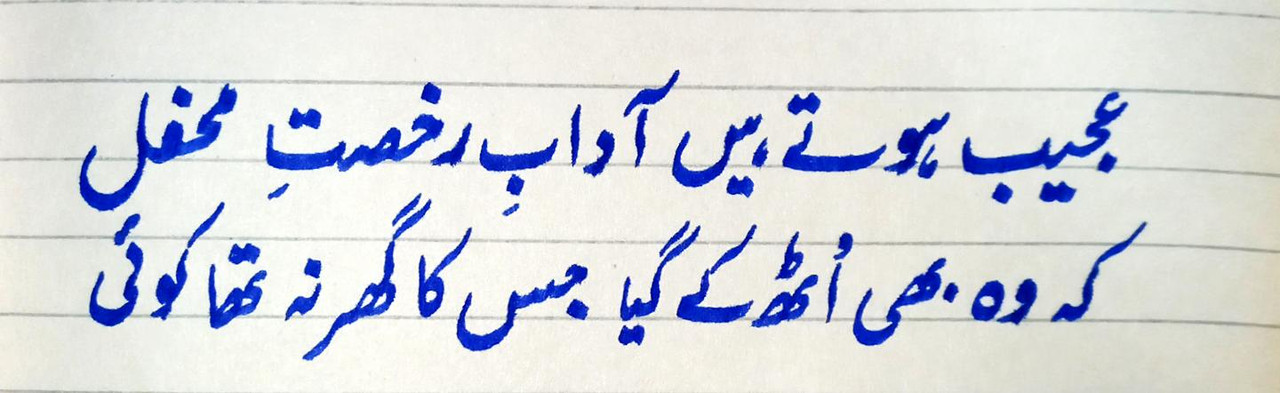 عجیب ہوتے ہیں آدابِ رخصتِ محفل
کہ وہ بھی اُٹھ کے گیا جس کا گھر نہ تھا کوئی